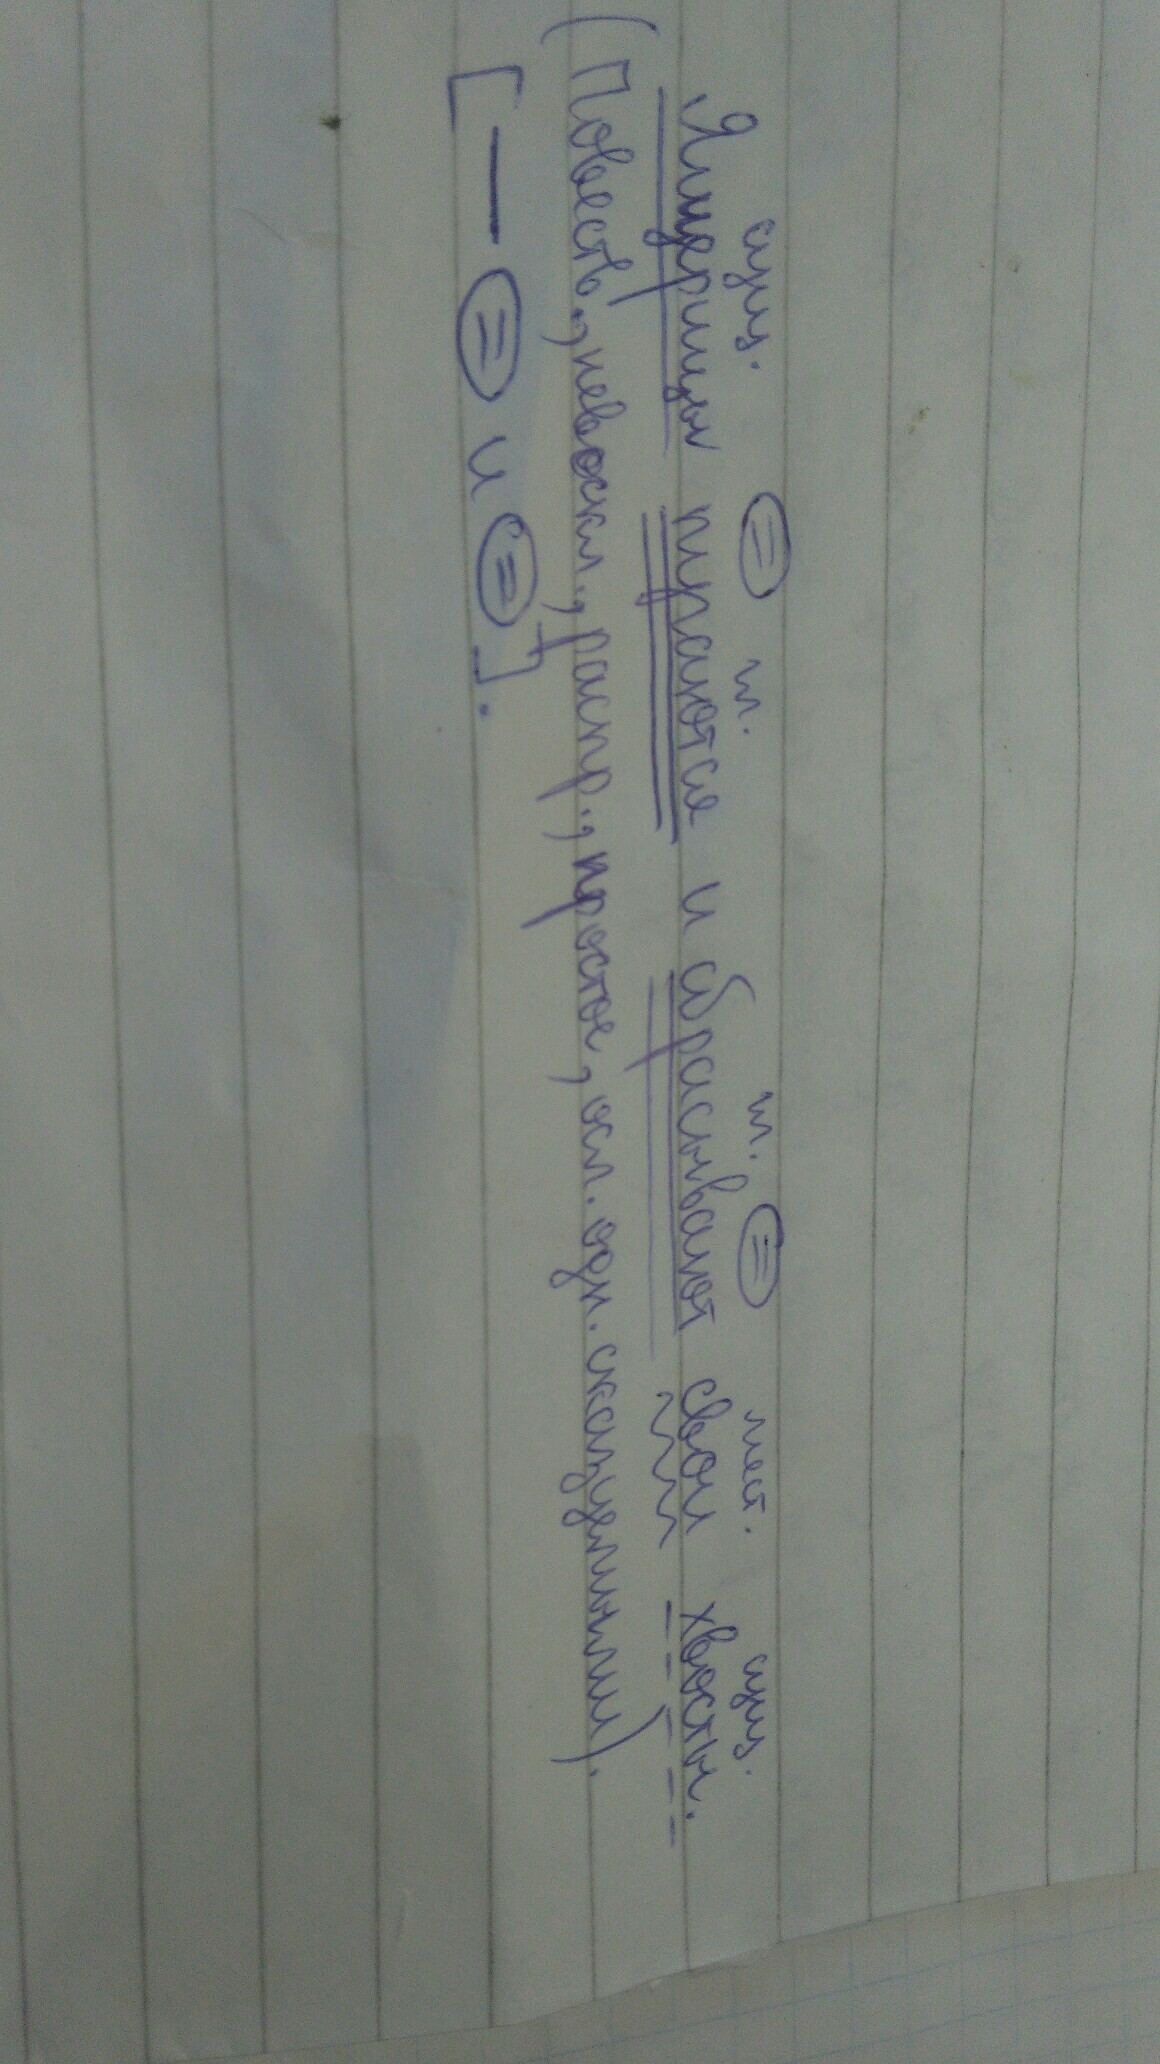 сущ. = гл. гл. = мест. сущ.
Ящерицы пугаются и сбрасывают свои хвосты.
(Повеств., невоскл., распр., простое, осл. одн. сказуемыми).
[— = и =].